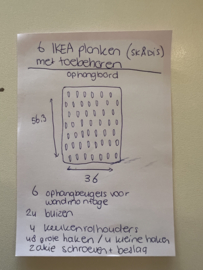 6 IKEA planken (SKÅDIS)
met toebehoren
ophangbord
56.3
36
6 ophangbeugels voor
wandmontage
24 buizen
4 keukenrolhouders
4d grote haken / 4 kleine haken
zakje schroeven + beslag